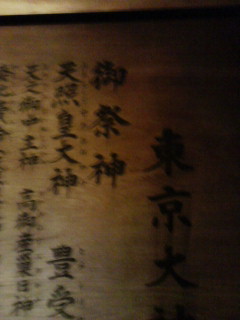 東京大神
御祭神
天照皇大神 豊受
天之御中主神 高御産巣日神